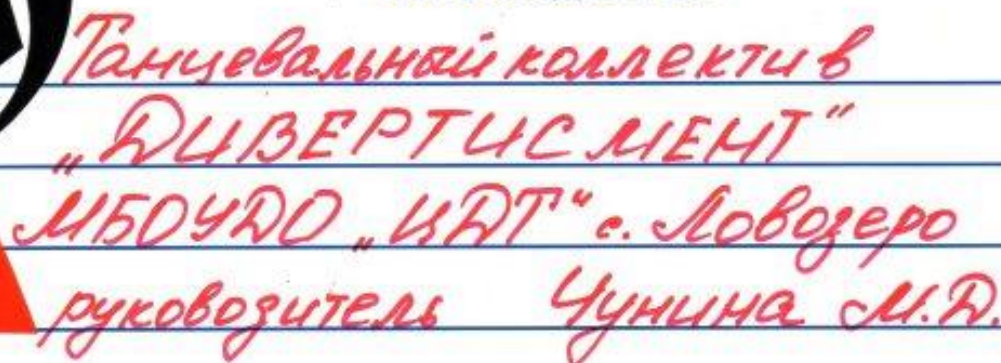 Танцевальный коллектив
„ДИВЕРТИСМЕНТ“
МБОУДО „ЦДТ“ с. Ловозеро
руководитель Чунина М.Д.